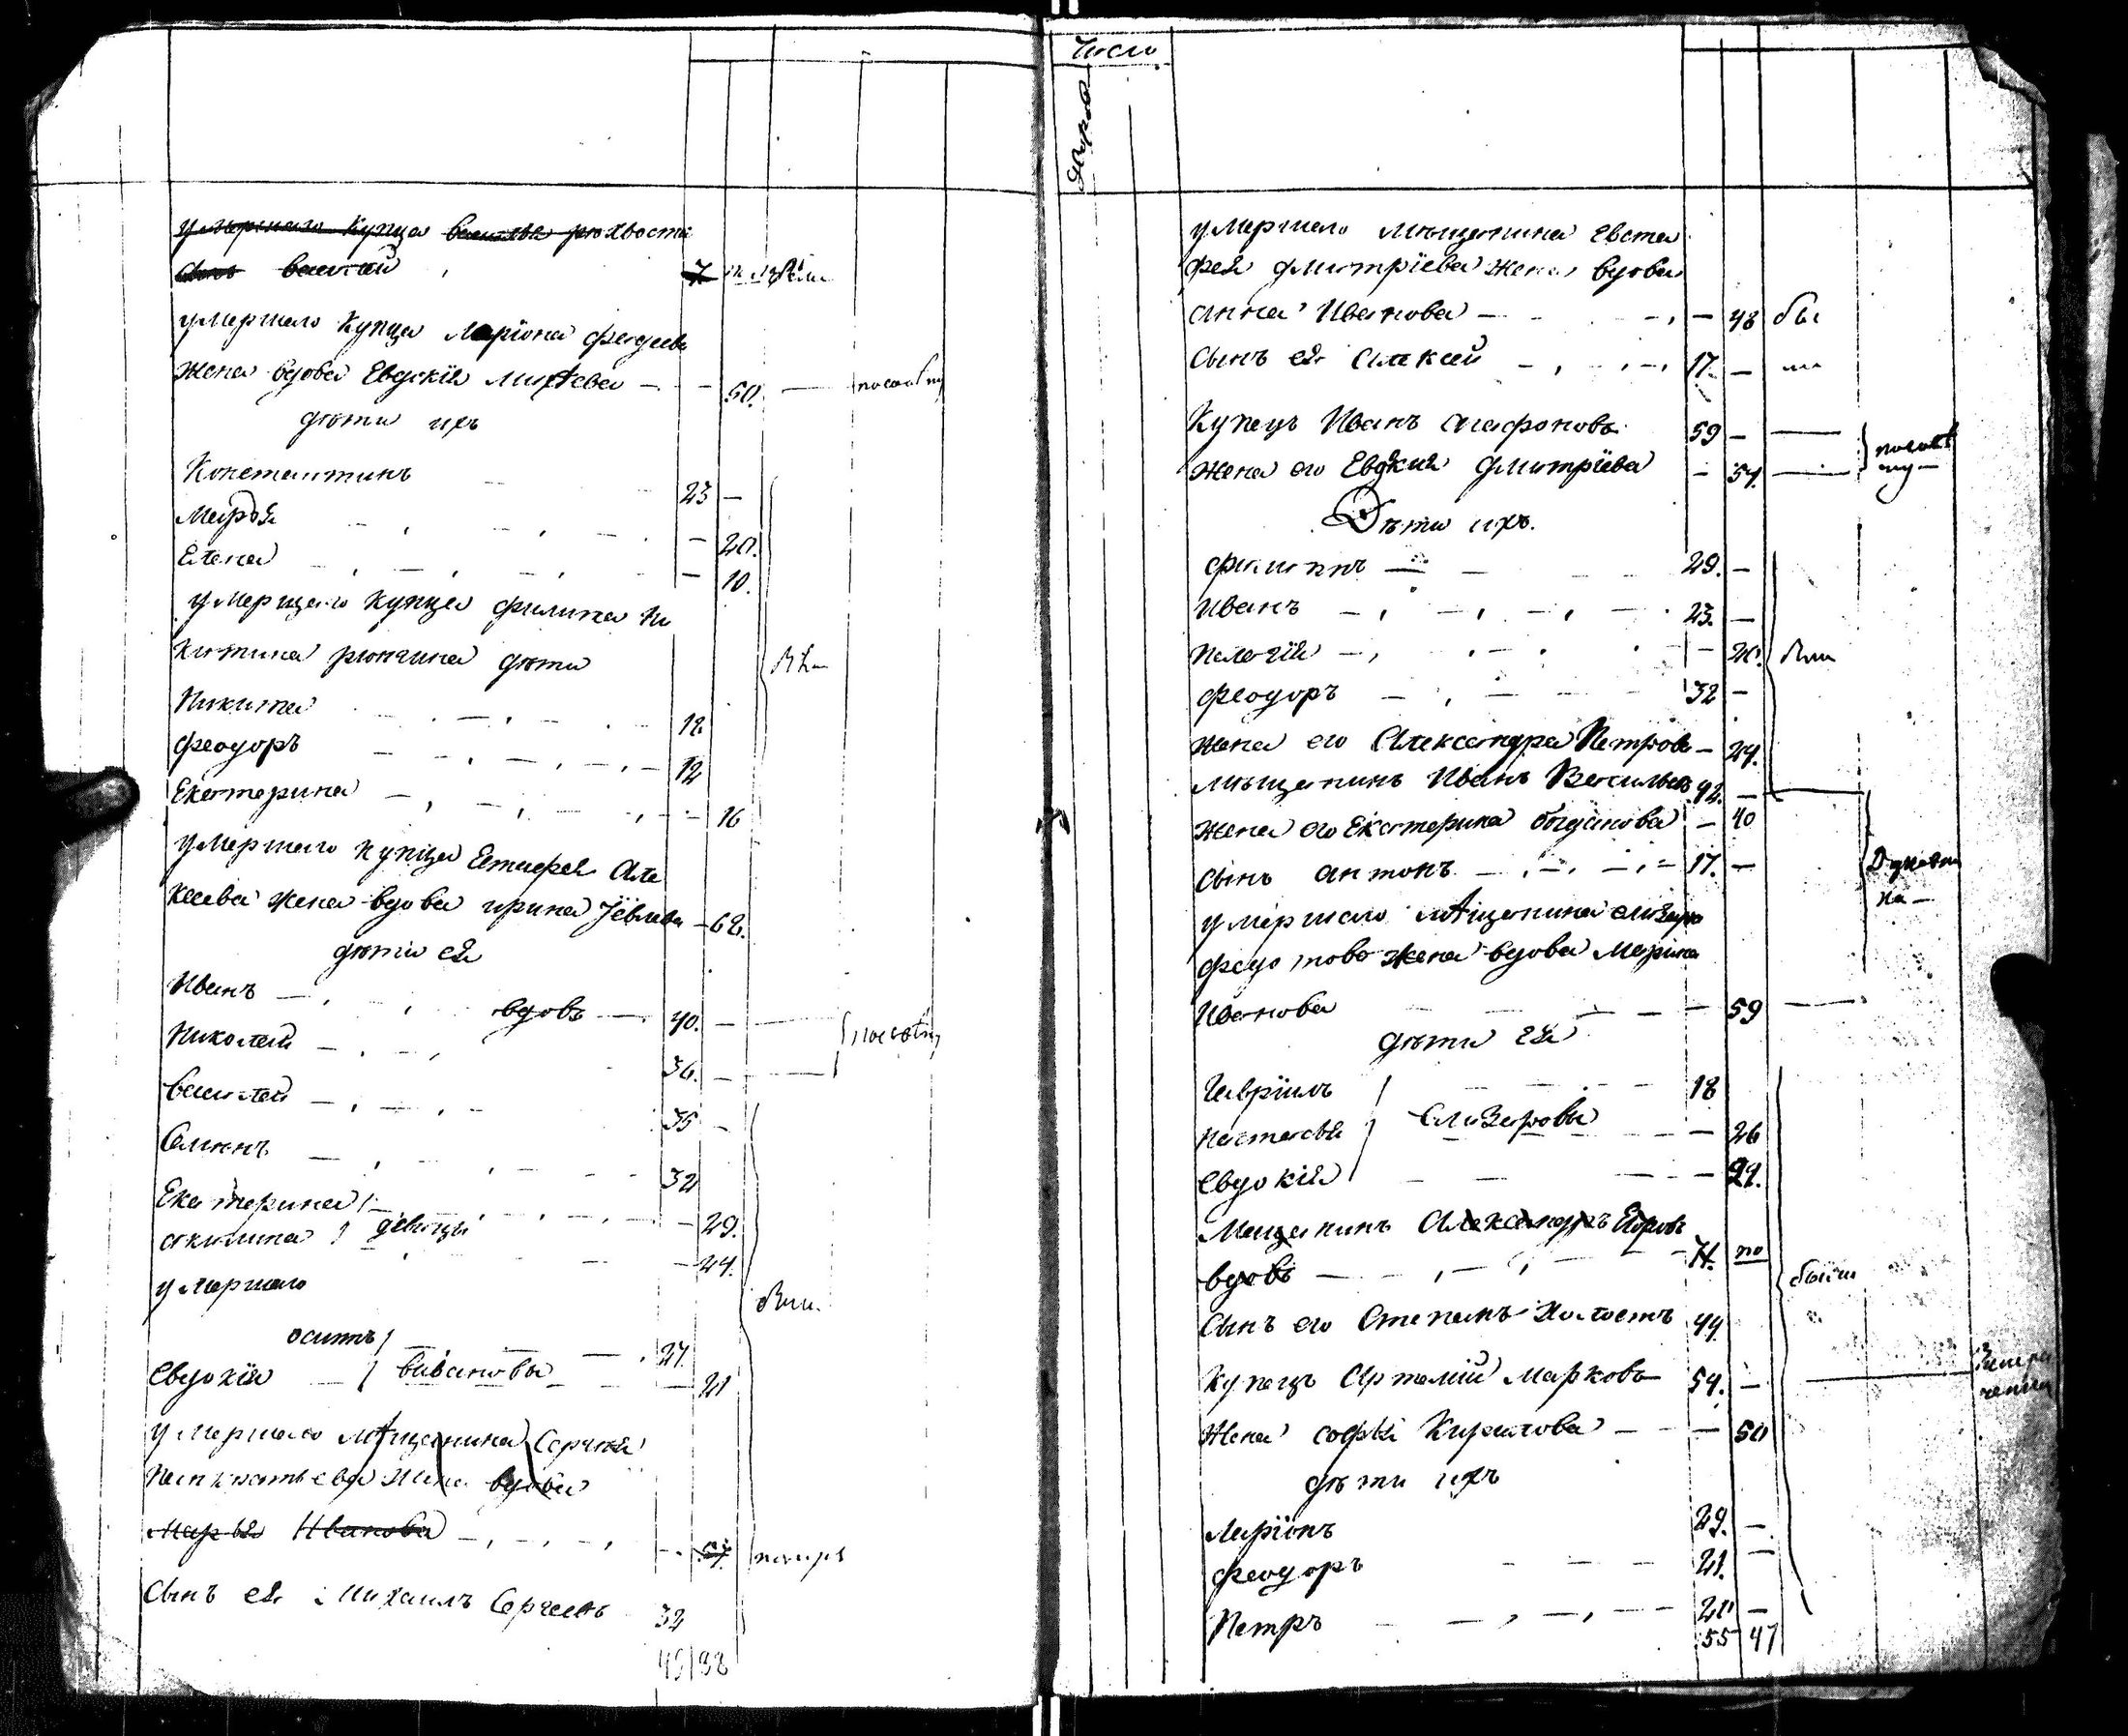 умершаго купца василья рюхвоста
сынъ василий 7
умершаго купца Лариона федеева
жена вдова Евдокия 50.
дѣти ихъ
Константинъ 23 —
Марья — 20.
Елена — 10.
умершаго купца филипа ни
китина рюпчина дѣти
Никита 18
феодоръ 12
Екатерина — 16
умершаго купца Естифея Але
ксеева жена вдова ирина Iевлева — 62.
дѣти ея
Иванъ — вдовъ — 40. —
Николай — 36. —
василей — 35 —
Семенъ — 32
Екатерина — 29.
акилина } девицы — 24.
умершаго
осипъ 27.
Евдокия — } вивановы — 21
умершаго мѣщанина Сергея
Панкратьева жена вдова
Марья Иванова помиръ
Сынъ ея Михаилъ Сергеевъ 32
45/38
Число
дворовъ
умершаго мѣщанина Евста
фея дмитрïева жена вдова
анна Иванова — 48
сынъ ея Алексей 17. —
Купецъ Иванъ агафоновъ 59 —
жена его Евдокия дмитрïева — 54.
Дѣти ихъ.
филиппъ 29. —
Иванъ 23. —
Пелагïя — 20.
феодоръ 32 —
жена его Александра Петрова — 24.
мѣщанинъ Иванъ Васильевъ 42. —
жена его Екатерина богданова — 40
сынъ антонъ 17. —
умершаго мѣщанина елизара
федотова жена вдова Марина
Иванова — 59
дѣти ея
Гаврïилъ 18
Настасья } Елизаровы — 26
Евдокïя — 24.
Мещанинъ Александръ Егоровъ
вдовъ 71.
Сынъ его Степанъ холостъ 44
Купецъ Артемий Марковъ 54. —
Жена софья Кирилова — 50
дѣти ихъ
Ларïонъ 29. —
феодоръ 21. —
Петръ 20 —
55 47